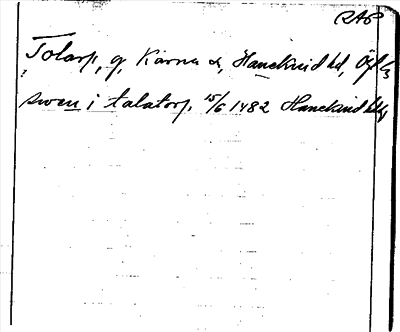 RAP
Tolarp, g, Kärna sn, Hanekind hd, Ögl
swen i talatorp. 15/6 1482 Hanekind hd